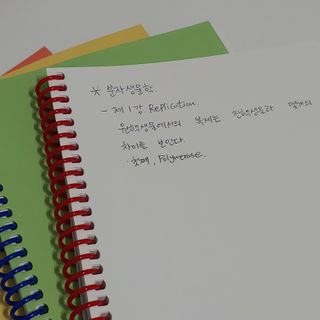 * 분자생물학.
- 제 1강. Replication.
원핵생물에서의 복제는 진핵생물과 몇개의
차이를 보인다.
· 첫째, Polymerase.